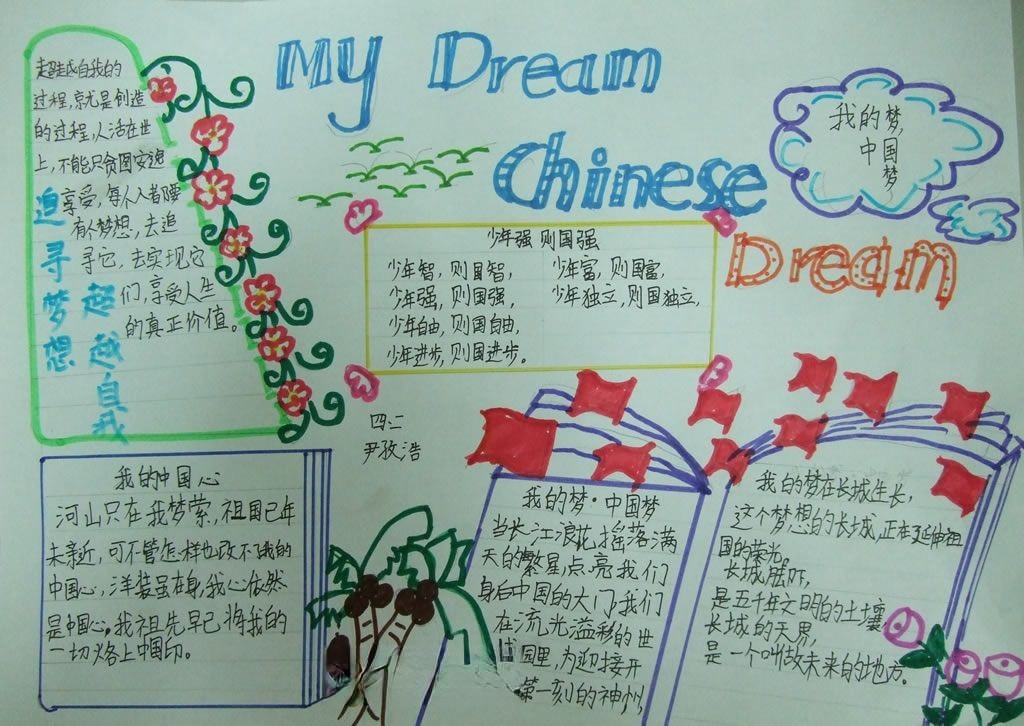 My Dream
Chinese
Dream
我的梦,
中国
梦
超越自我的
过程,就是创造
的过程,人活在世
上,不能只贪图安逸
享受,每人人者腰
有人梦想,去追
寻它,去实现它
们,享受人生
的真正价值。
追寻梦想
超越自我
少年强 则国强
少年智,则国智,
少年强,则国强,
少年自由,则国自由,
少年进步,则国进步。
少年富,则国富,
少年独立,则国独立,
四二
尹孜浩
我的中国心
河山只在我梦萦,祖国已年
未亲近,可不管怎样也改不了我的
中国心,洋装虽在身,我心依然
是中国心。我祖先早已将我的
一切烙上中国印。
我的梦·中国梦
当长江浪花,摇落满
天的繁星,点亮我们
身后中国的大门,我们
在流光溢彩的世
园里,为迎接开
第一刻的神州,
我的梦在长城生长,
这个梦想的长城,正在延伸祖
国的荣光。
长城
是五千年文明的土壤,
长城的天界,
是一个叫做未来的地方。